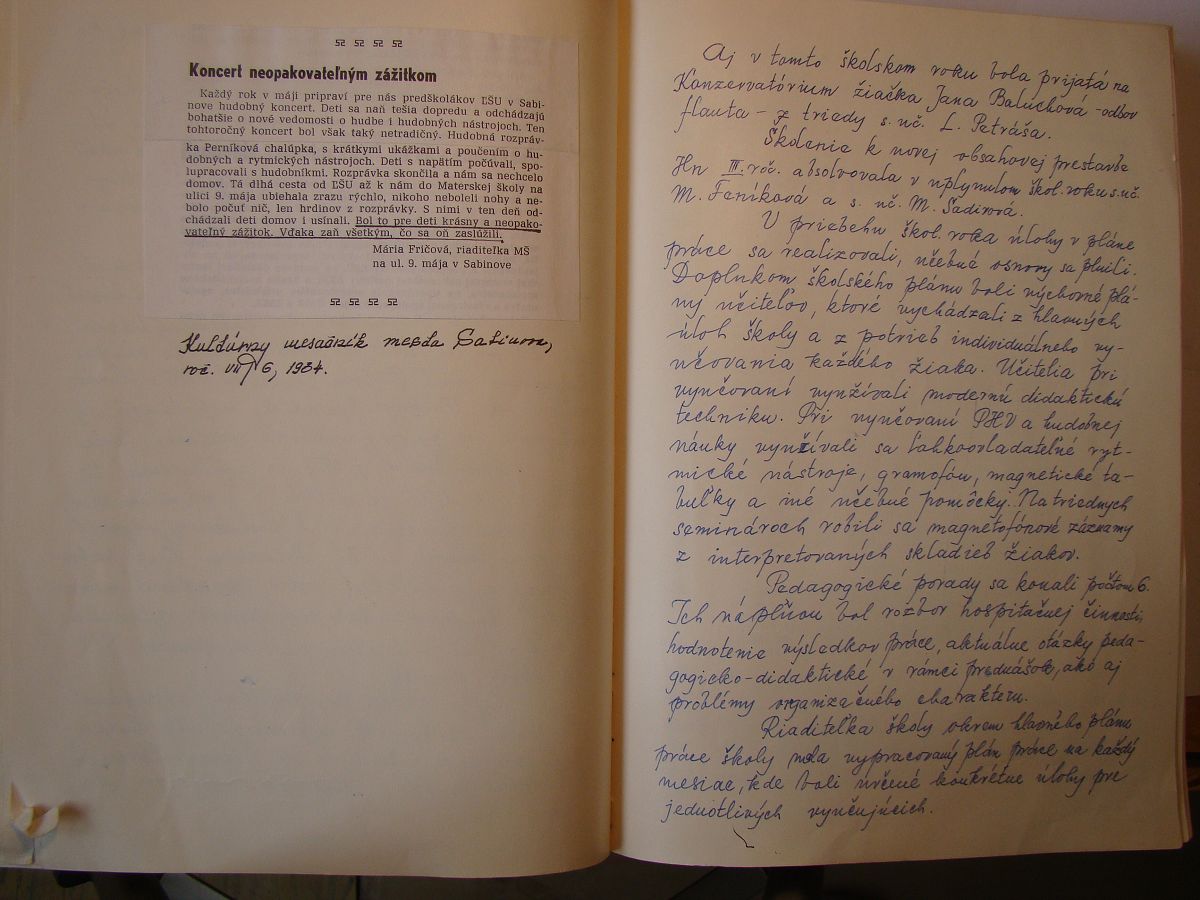 Koncert neopakovateľným zážitkom
Každý rok v máji pripraví pre nás predškolákov ĽŠU v Sabi-
nove hudobný koncert. Deti sa naň tešia dopredu a odchádzajú
bohatšie o nové vedomosti o hudbe i hudobných nástrojoch. Ten
tohtoročný koncert bol však taký netradičný. Hudobná rozpráv-
ka Perníková chalúpka, s krátkymi ukážkami a poučením o hu-
dobných a rytmických nástrojoch. Deti s napätím počúvali, spo-
lupracovali s hudobníkmi. Rozprávka skončila a nám sa nechcelo
domov. Tá dlhá cesta od ĽŠU až k nám do Materskej školy na
ulici 9. mája ubiehala zrazu rýchlo, nikoho neboleli nohy a ne-
bolo počuť nič, len hrdinov z rozprávky. S nimi v ten deň od-
chádzali deti domov i usínali. Bol to pre deti krásny a neopako-
vateľný zážitok. Vďaka zaň všetkým, čo sa oň zaslúžili.
Mária Fričová, riaditeľka MŠ
na ul. 9. mája v Sabinove
Kultúrny mesačník mesta Sabinova,
roč. VII, 6, 1984.
Aj v tomto školskom roku bola prijatá na
Konzervatórium žiačka Jana Baluchová - odbor
flauta - z triedy s. uč. L. Petráša.
Školenie k novej obsahovej prestavbe
Hn III. roč. absolvovala v uplynulom škol. roku s. uč.
M. Feníková a s. uč. M. Šadirová.
V priebehu škol. roka úlohy v pláne
práce sa realizovali, učebné osnovy sa plnili.
Doplnkom školského plánu boli výchovné plá-
ny učiteľov, ktoré vychádzali z hlavných
úloh školy a z potrieb individuálneho vy-
učovania každého žiaka. Učitelia pri
vyučovaní využívali modernú didaktickú
techniku. Pri vyučovaní PHV a hudobnej
náuky využívali sa ľahkoovladateľné ryt-
mické nástroje, gramofón, magnetické ta-
buľky a iné učebné pomôcky. Na triednych
seminároch robili sa magnetofónové záznamy
z interpretovaných skladieb žiakov.
Pedagogické porady sa konali počtom 6.
Ich náplňou bol rozbor hospitačnej činnosti,
hodnotenie výsledkov práce, aktuálne otázky peda-
gogicko-didaktické v rámci prednášok, ako aj
problémy organizačného charakteru.
Riaditeľka školy okrem hlavného plánu
práce školy mala vypracovaný plán práce na každý
mesiac, kde boli určené konkrétne úlohy pre
jednotlivých vyučujúcich.